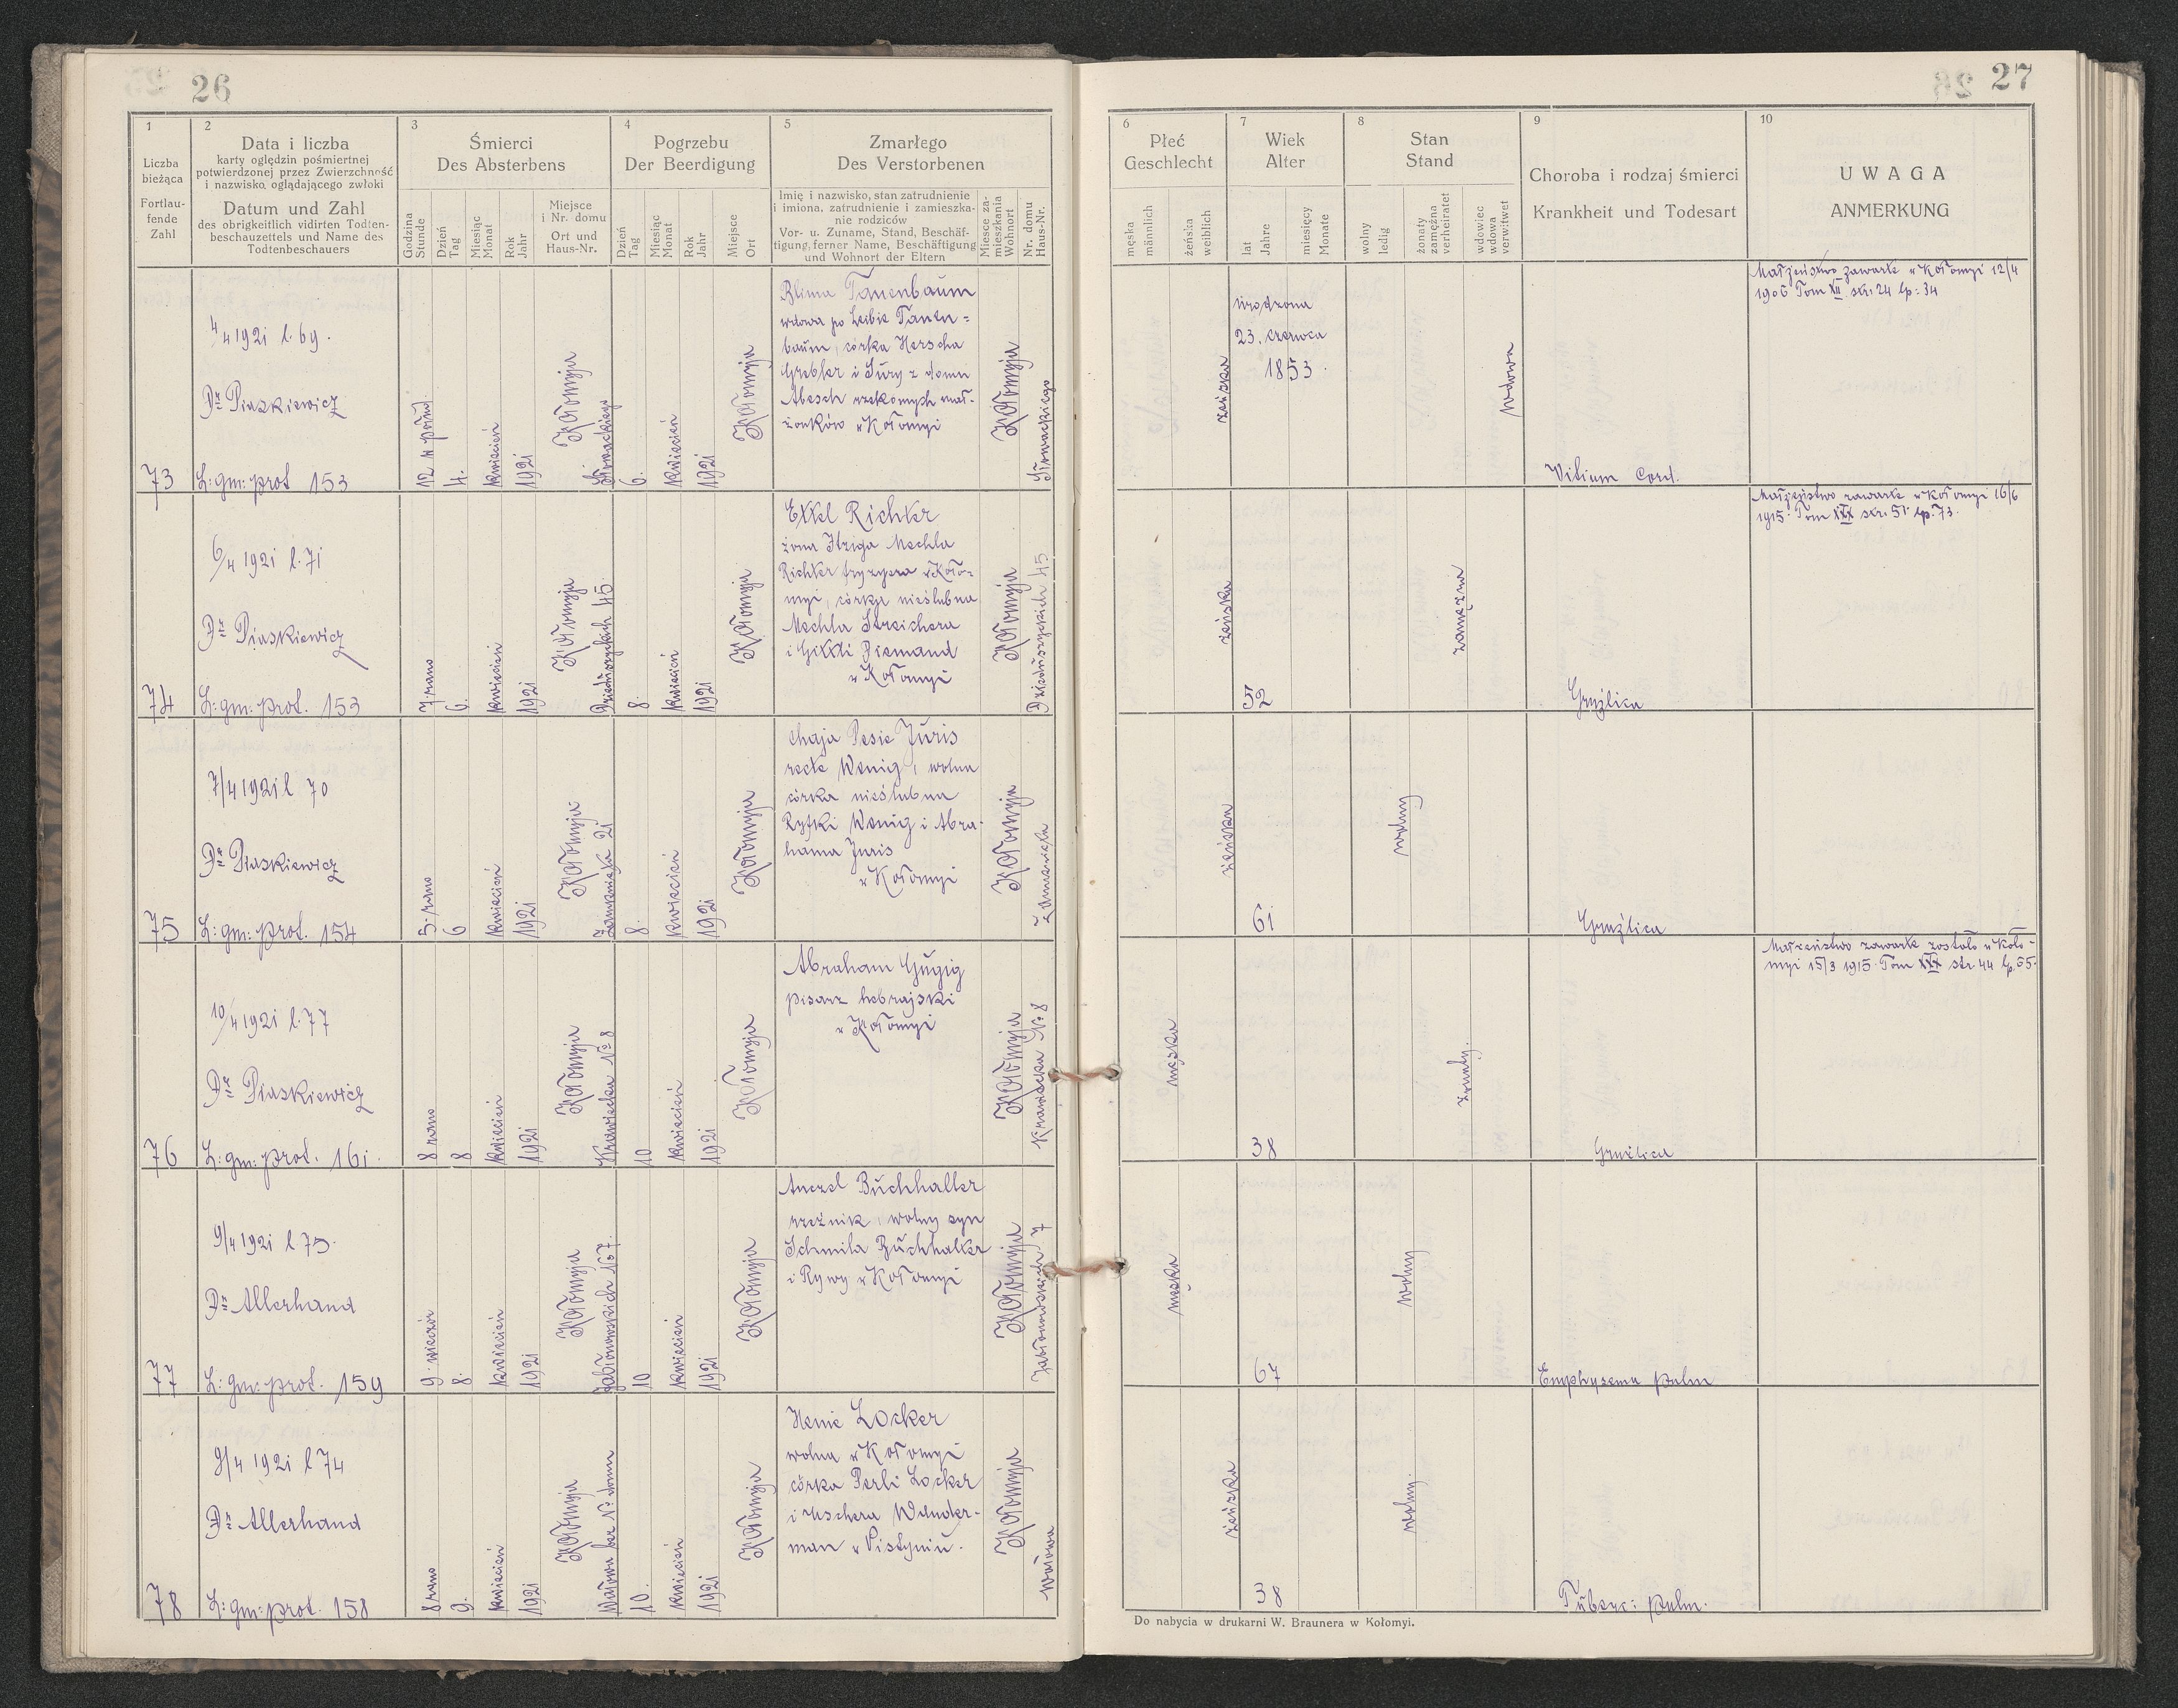 26
1
Liczba
bieżąca
Fortlau-
fende
Zahl
2
Data i liczba
karty oględzin pośmiertnej
potwierdzonej przez Zwierzchność
i nazwisko oglądającego zwłoki
Datum und Zahl
des obrigkeitlich vidirten Todten-
beschauzettels und Name des
Todtenbeschauers
3
Śmierci
Des Absterbens
Godzina
Stunde
Dzień
Tag
Miesiąc
Monat
Rok
Jahr
Miejsce
i Nr. domu
Ort und
Haus-Nr.
4
Pogrzebu
Der Beerdigung
Dzień
Tag
Miesiąc
Monat
Rok
Jahr
Miejsce
Ort
5
Zmarłego
Des Verstorbenen
Imię i nazwisko, stan zatrudnienie
i imiona, zatrudnienie i zamieszka-
nie rodziców
Vor- u. Zuname, Stand, Beschäf-
tigung, ferner Name, Beschäftigung
und Wohnort der Eltern
Miesce za-
mieszkania
Wohnort
Nr. domu
Haus-Nr.
73
4/4 1921 l. 69.
Dr Piaskiewicz
L: gm: prot 153
12 w połud.
4.
kwiecień
1921
Kołomyja
6.
kwiecień
1921
Kołomyja
Blima Tanenbaum
wdowa po Leibie Tanen=
baum, córka Herscha
Grebler i Sury z domu
Abesch rzekomych mał-
żonków w Kołomyi
Kołomyja
74
6/4 1921 l. 71
Dr Piaskiewicz
L: gm: prot. 153
7 rano
6.
kwiecień
1921
Kołomyja
Dzieduszyckich 45
8.
kwiecień
1921
Kołomyja
Ettel Richter
żona Itziga Mechla
Richter fryzyera w Koło-
myi, córka nieślubna
Mechla Streichera
i Gittli Diemand
w Kołomyi
Kołomyja
Dzieduszyckich 45
75
7/4 1921 l 70
Dr Piaskiewicz
L: gm: prot. 154
5 rano
6
kwiecień
1921
Kołomyja
8.
kwiecień
1921
Kołomyja
Chaja Pesie Juris
recte Wenig, wolna
córka nieślubna
Ryfki Wenig i Abra-
hama Juris
w Kołomyi
Kołomyja
76
10/4 1921 l. 77
Dr Piaskiewicz
L: gm: prot. 161.
8 rano
8
kwiecień
1921
Kołomyja
Krawiecka No 8
10
kwiecień
1921
Kołomyja
Abraham Gugig
pisarz hebrajski
w Kołomyi
Kołomyja
Krawiecka No 8
77
9/4 1921 l 75.
Dr Allerhand
L: gm: prot. 159
9 wieczór
8.
kwiecień
1921
Kołomyja
Jabłonowskich No 7.
10
kwiecień
1921
Kołomyja
Anczel Buchhalter
rzeźnik, wolny syn
Schmila Buchhalter
i Rywy w Kołomyi
Kołomyja
Jabłonowskich 7
78
9/4 1921 l 74
Dr Allerhand
L: gm: prot. 158
8 rano
9.
kwiecień
1921
Kołomyja
Wałowa bez No domu
10.
kwiecień
1921
Kołomyja
Henie Locker
wolna w Kołomyi
córka Perli Locker
i Uschera Wunder-
man w Pistyniu.
Kołomyja
Wałowa
27
6
Płeć
Geschlecht
męska
männlich
żeńska
weiblich
7
Wiek
Alter
lat
Jahre
miesięcy
Monate
8
Stan
Stand
wolny
ledig
żonaty
zamężna
verheiratet
wdowiec
wdowa
verwitwet
9
Choroba i rodzaj śmierci
Krankheit und Todesart
10
UWAGA
ANMERKUNG
żeńska
urodzona
23. czerwca
1853.
wdowa
Vitium Cord.
Małżeństwo zawarte w Kołomyi 12/4
1906 Tom XII str: 24 lp: 34
żeńska
52
zamężna
Gruźlica
Małżeństwo zawarte w Kołomyi 16/6
1915 Tom XXX str. 51 lp. 73.
żeńska
61
wolny
Gruźlica
męska
38
żonaty.
Gruźlica
Małżeństwo zawarte zostało w Koło-
myi 15/3 1915 Tom XXX str. 44 lp. 55.
męska
67
wolny
Emphysema pulm
żeńska
38
wolny.
Tuberc: pulm.
Do nabycia w drukarni W. Braunera w Kołomyi.